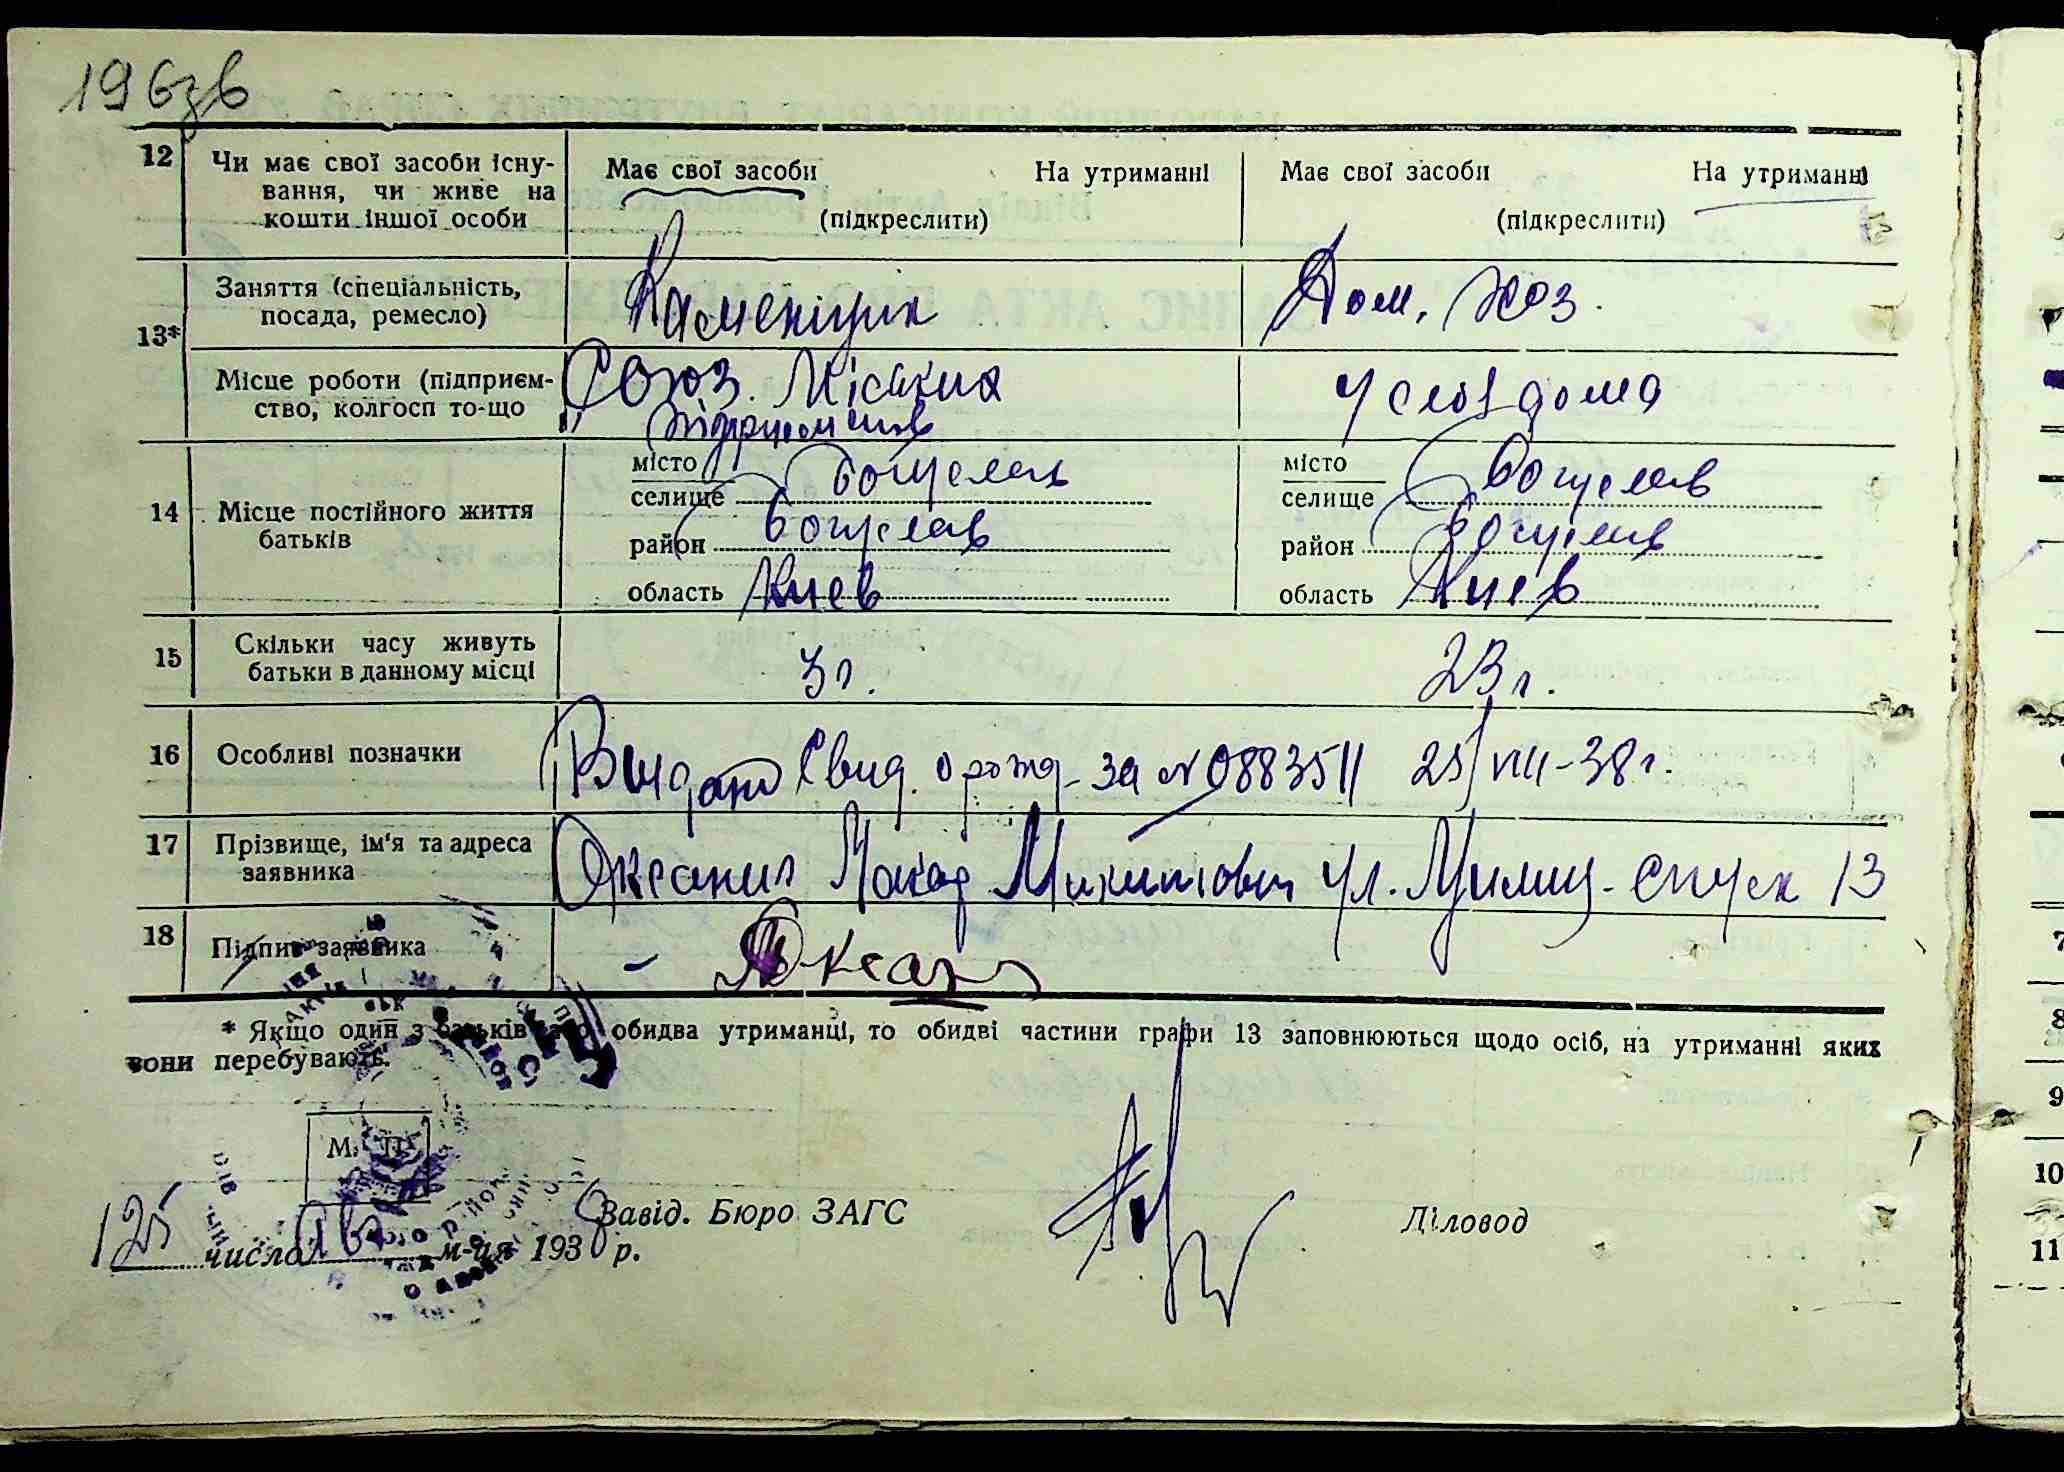 196зв
12 Чи має свої засоби існу-
вання, чи живе на
кошти іншої особи
Має свої засоби На утриманні
(підкреслити)
Має свої засоби На утриманні
(підкреслити)
13*
Заняття (спеціальність,
посада, ремесло)
Каменщик
Дом. хоз.
Місце роботи (підприєм-
ство, колгосп то-що
Союз. Міських
підприємств
у себя дома
14 Місце постійного життя
батьків
місто
селище Богуслав
район Богуслав
область Киев
місто
селище Богуслав
район Богуслав
область Киев
15 Скільки часу живуть
батьки в данному місці
3 г.
23 г.
16 Особливі позначки
Видано Свид. о рожд. за № 0883511 25/VIII-38 г.
17 Прізвище, ім'я та адреса
заявника
Макар Микитович ул. спуск 13
18 Підпис заявника
* Якщо один з батьків або обидва утриманці, то обидві частини графи 13 заповнюються щодо осіб, на утриманні яких
вони перебувають.
М. П.
Завід. Бюро ЗАГС
Діловод
25 число Авг м-ця 1938 р.
7
8
9
10
11